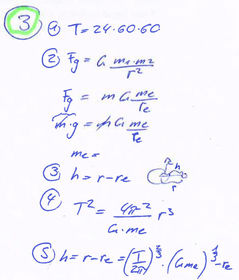 3
① T = 24·60·60
② Fg = G m₁·m₂ / r²
Fg = m G me / re
m·g = m G me / re
me =
③ h = r - re
h
r
④ T² = 4π² / G·me r³
⑤ h = r - re = (T / 2π)^⅔ · (G me)^⅓ - re